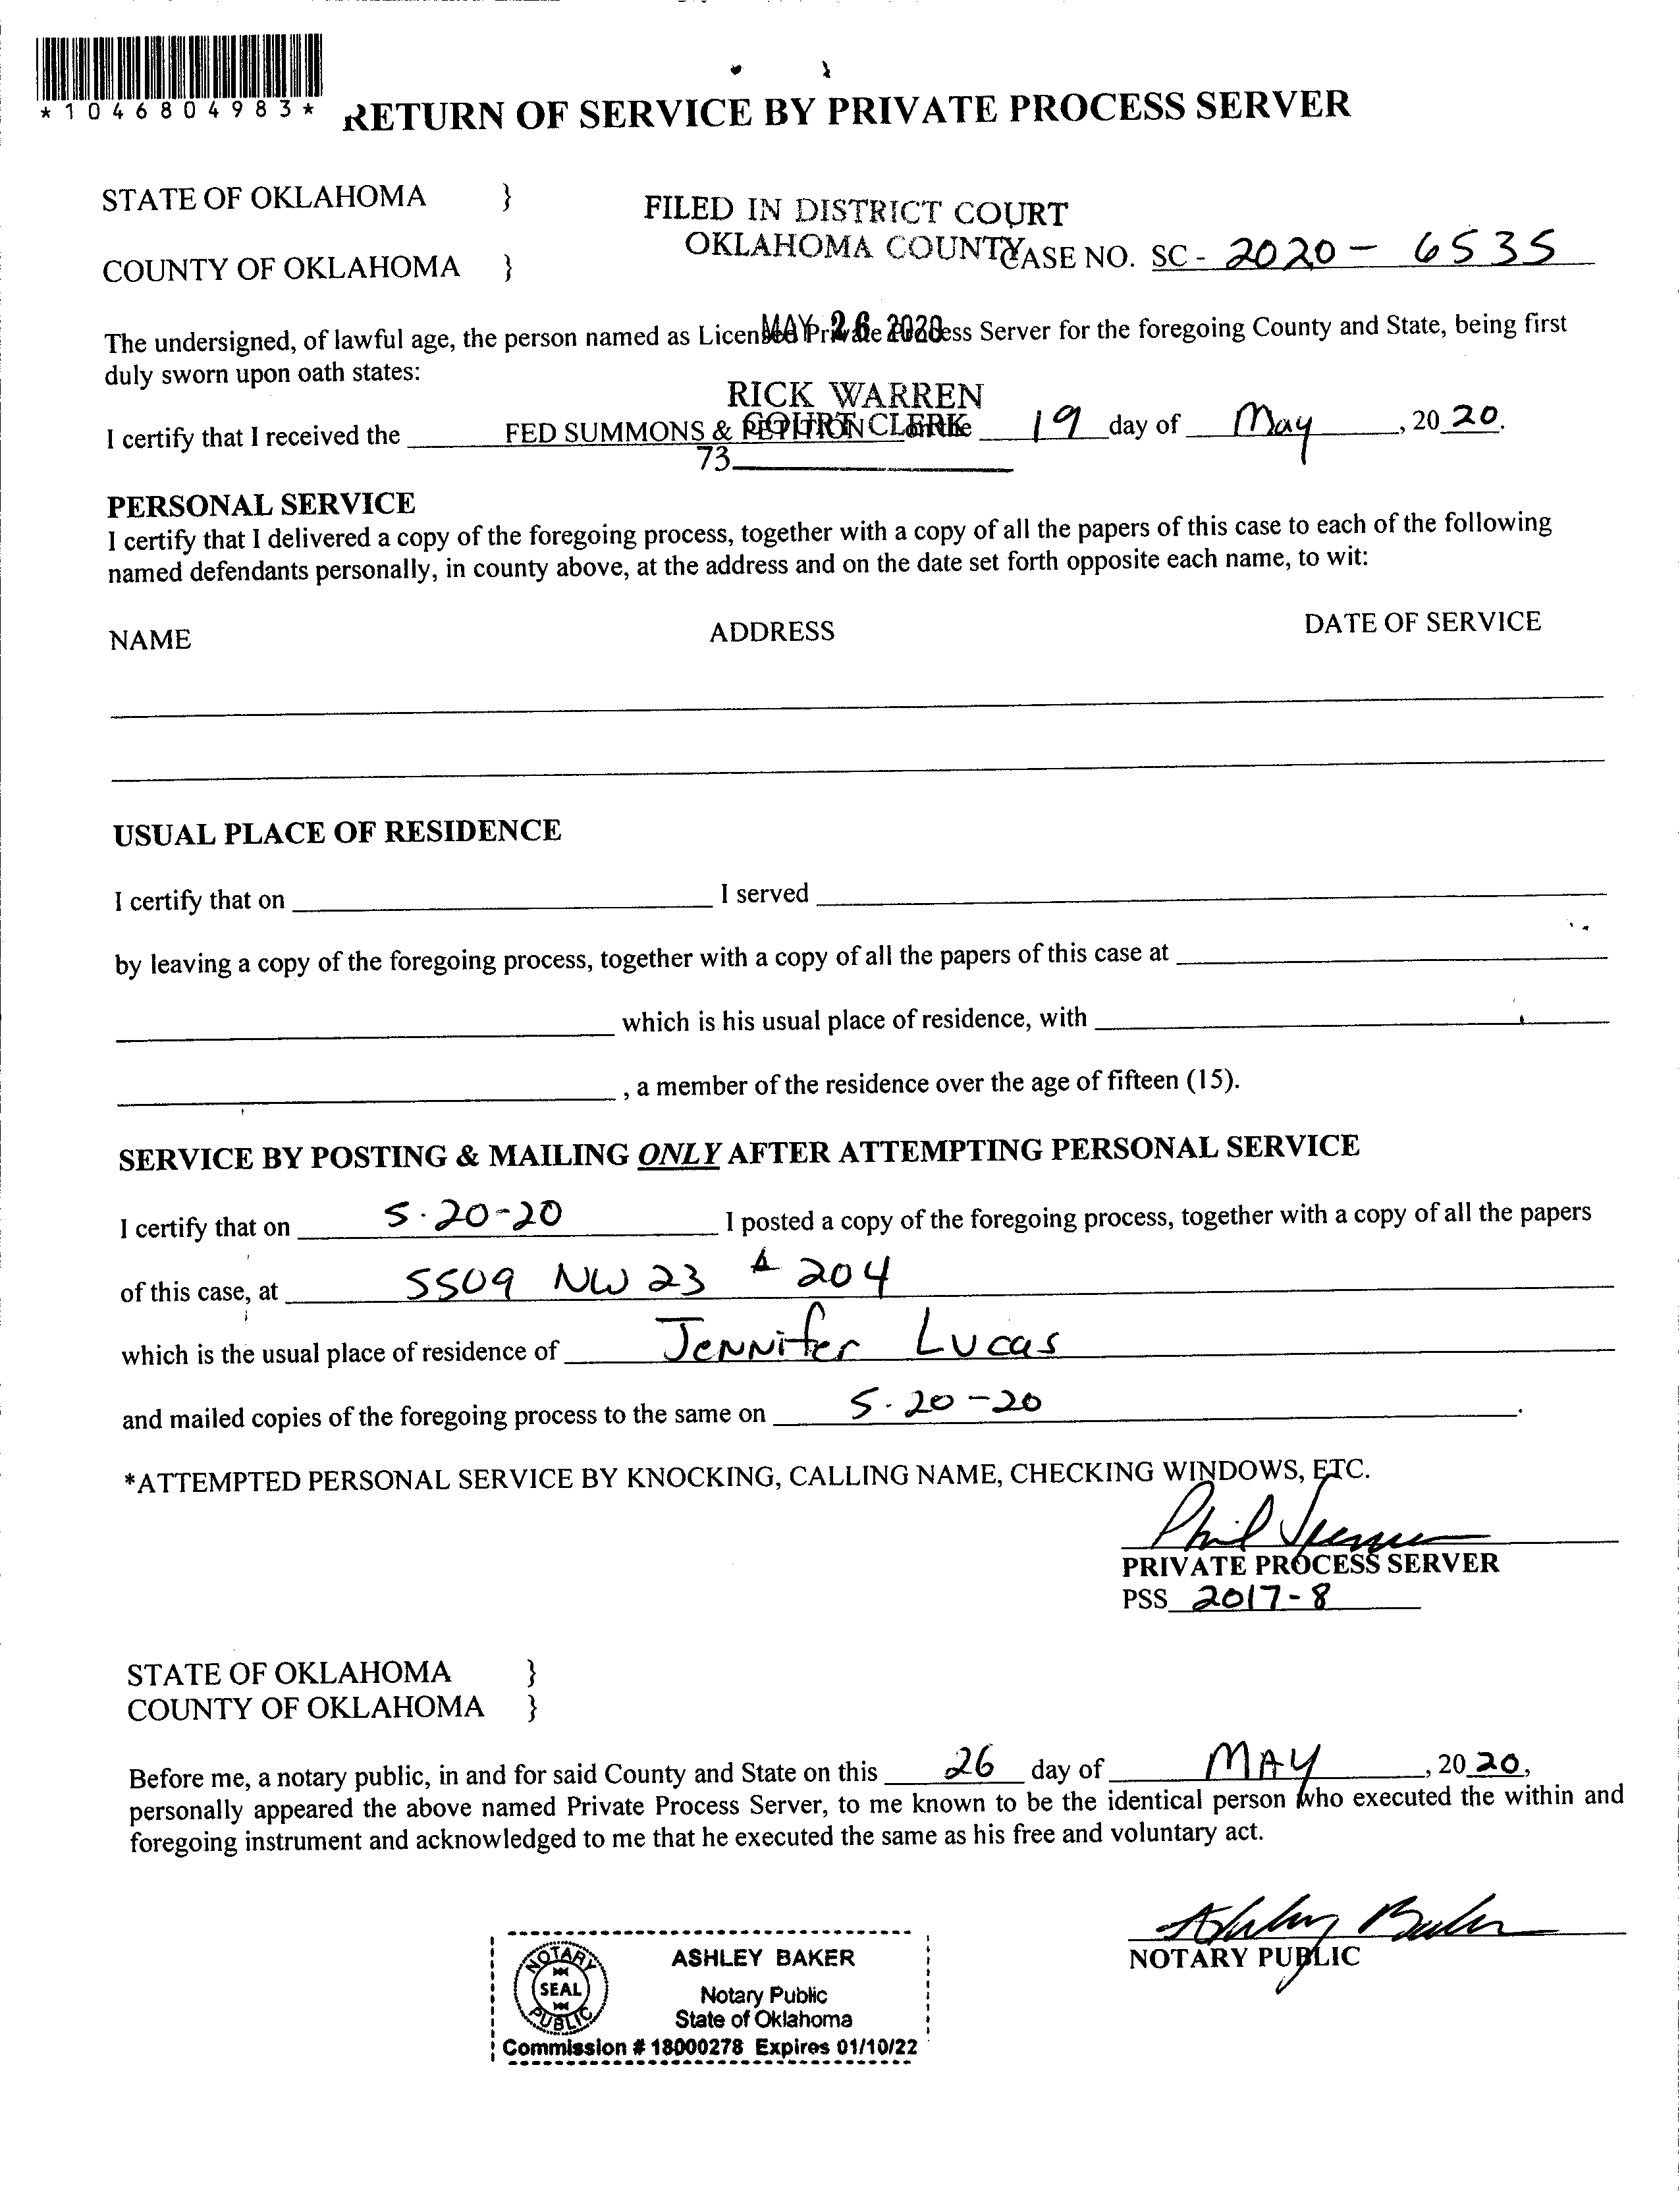 *1046804983*
RETURN OF SERVICE BY PRIVATE PROCESS SERVER
STATE OF OKLAHOMA }
FILED IN DISTRICT COURT
OKLAHOMA COUNTY
COUNTY OF OKLAHOMA }
CASE NO. SC - 2020 - 6535
MAY 26 2020
The undersigned, of lawful age, the person named as Licensed Private Process Server for the foregoing County and State, being first
duly sworn upon oath states:
RICK WARREN
COURT CLERK
I certify that I received the FED SUMMONS & PETITION on the 19 day of May, 20 20.
73
PERSONAL SERVICE
I certify that I delivered a copy of the foregoing process, together with a copy of all the papers of this case to each of the following
named defendants personally, in county above, at the address and on the date set forth opposite each name, to wit:
NAME ADDRESS DATE OF SERVICE
USUAL PLACE OF RESIDENCE
I certify that on I served
by leaving a copy of the foregoing process, together with a copy of all the papers of this case at
which is his usual place of residence, with
, a member of the residence over the age of fifteen (15).
SERVICE BY POSTING & MAILING ONLY AFTER ATTEMPTING PERSONAL SERVICE
I certify that on 5.20-20 I posted a copy of the foregoing process, together with a copy of all the papers
of this case, at 5509 NW 23 204
which is the usual place of residence of Jennifer Lucas
and mailed copies of the foregoing process to the same on 5.20-20.
*ATTEMPTED PERSONAL SERVICE BY KNOCKING, CALLING NAME, CHECKING WINDOWS, ETC.
Phil
PRIVATE PROCESS SERVER
PSS 2017-8
STATE OF OKLAHOMA }
COUNTY OF OKLAHOMA }
Before me, a notary public, in and for said County and State on this 26 day of MAY, 20 20,
personally appeared the above named Private Process Server, to me known to be the identical person who executed the within and
foregoing instrument and acknowledged to me that he executed the same as his free and voluntary act.
Ashley Baker
NOTARY PUBLIC
NOTARY PUBLIC
SEAL
ASHLEY BAKER
Notary Public
State of Oklahoma
Commission # 18000278 Expires 01/10/22